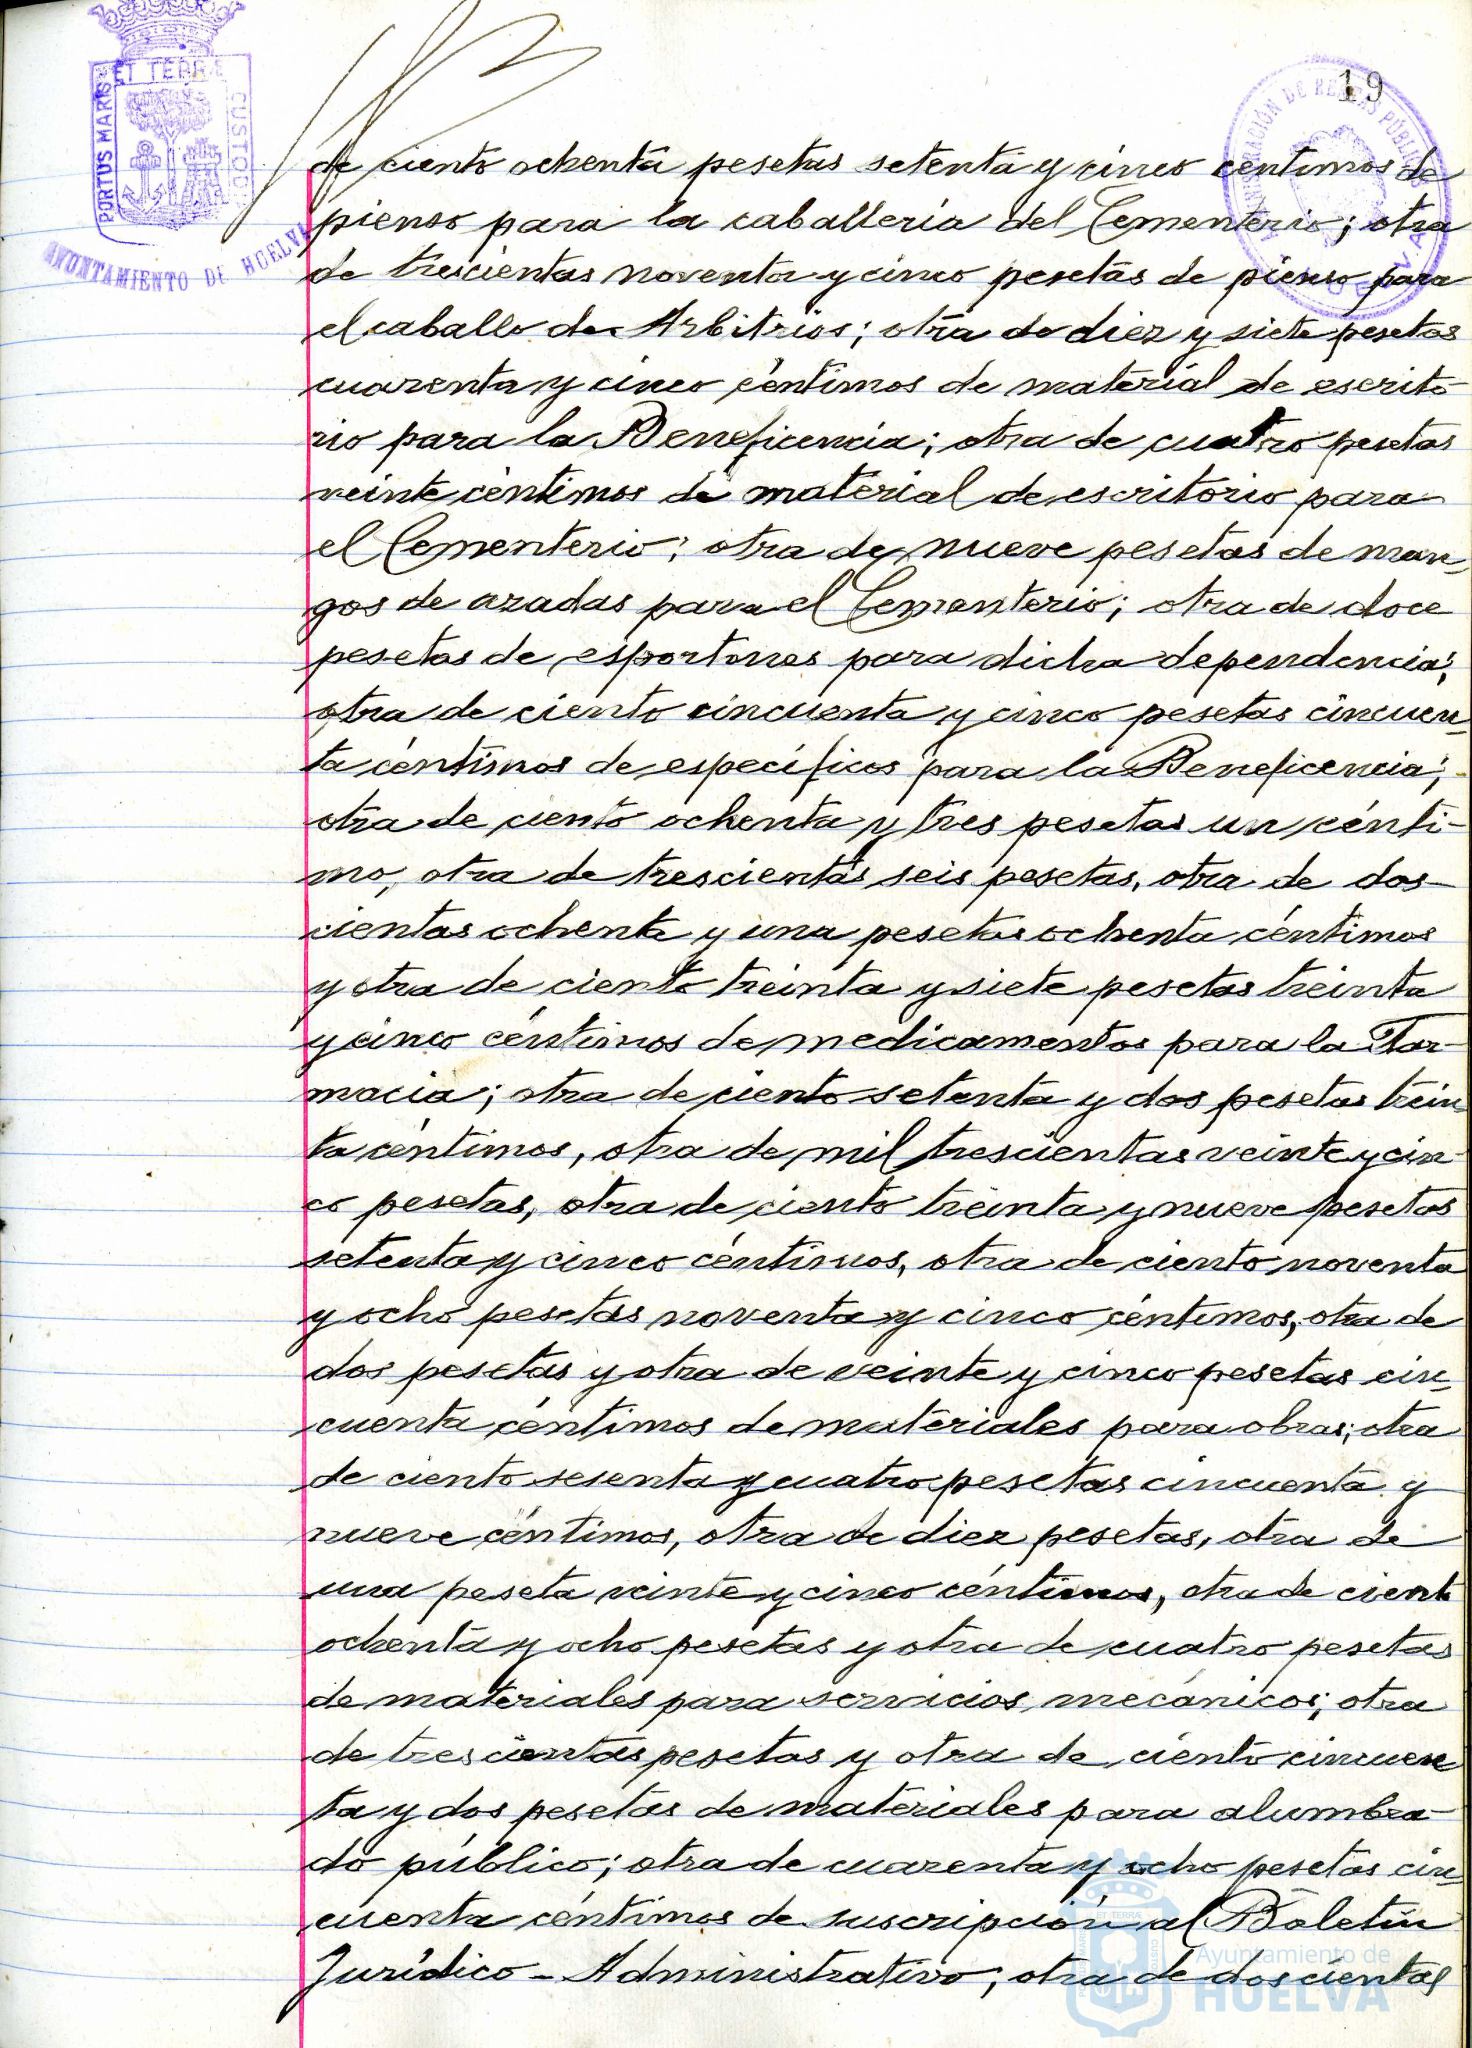 19
PORTUS MARIS ET TERRÆ CUSTODI
AYUNTAMIENTO DE HUELVA
de ciento ochenta pesetas setenta y cinco centimos de
pienso para la caballeria del Cementerio; otra
de trescientas noventa y cinco pesetas de pienso para
el caballo de Arbitrios; otra de diez y siete pesetas
cuarenta y cinco céntimos de material de escrito
rio para la Beneficencia; otra de cuatro pesetas
veinte céntimos de material de escritorio para
el Cementerio; otra de nueve pesetas de man-
gos de azadas para el Cementerio; otra de doce
pesetas de esportones para dicha dependencia;
otra de ciento cincuenta y cinco pesetas cincuen-
ta céntimos de específicos para la Beneficencia;
otra de ciento ochenta y tres pesetas un cénti-
mo, otra de trescientas seis pesetas, otra de dos-
cientas ochenta y una pesetas ochenta céntimos
y otra de ciento treinta y siete pesetas treinta
y cinco céntimos de medicamentos para la Far-
macia; otra de ciento setenta y dos pesetas trein
ta céntimos, otra de mil trescientas veinte y cin-
co pesetas, otra de ciento treinta y nueve pesetas
setenta y cinco céntimos, otra de ciento noventa
y ocho pesetas noventa y cinco céntimos, otra de
dos pesetas y otra de veinte y cinco pesetas cin-
cuenta céntimos de materiales para obras; otra
de ciento sesenta y cuatro pesetas cincuenta y
nueve céntimos, otra de diez pesetas, otra de
una peseta veinte y cinco céntimos, otra de cient
ochenta y ocho pesetas y otra de cuatro pesetas
de materiales para servicios mecánicos; otra
de trescientas pesetas y otra de ciento cincuen
ta y dos pesetas de materiales para alumbra-
do público; otra de cuarenta y ocho pesetas cin-
cuenta céntimos de suscripción al Boletín
Jurídico-Administrativo; otra de doscientas
Ayuntamiento de
HUELVA